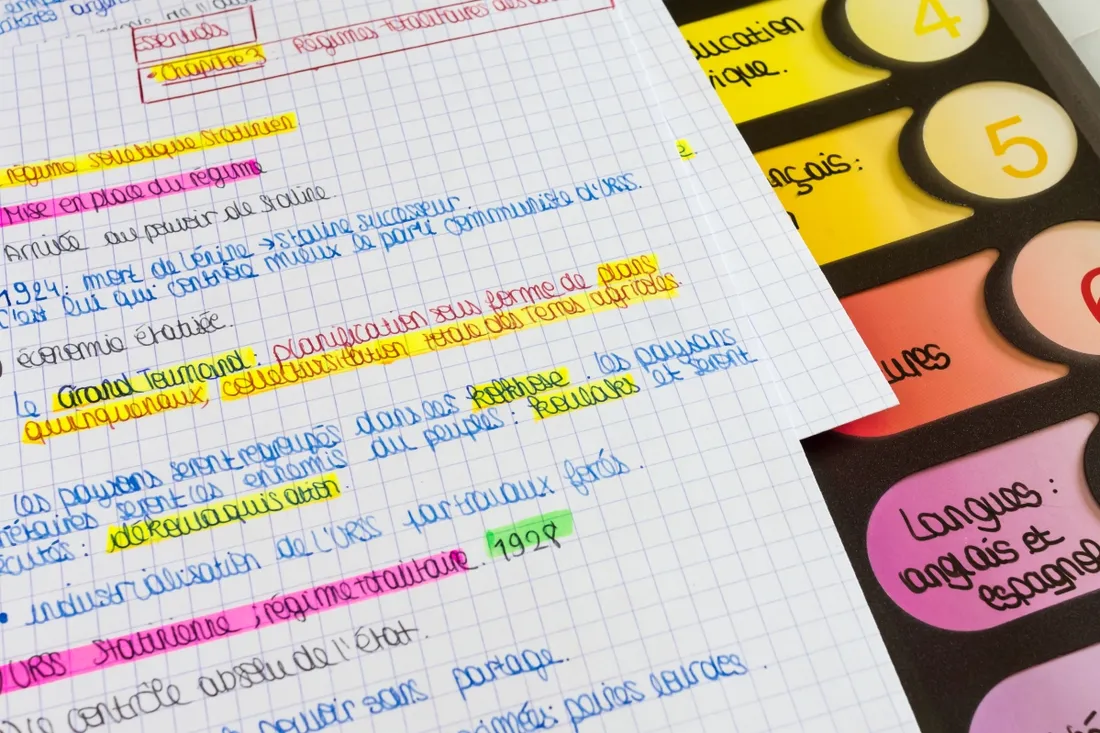 Essentials
Régimes totalitaires des
• Chapitre 3
régime soviétique Stalinien
Mise en place du régime
Arrivée au pouvoir de Staline
1924: mort de Lénine → Staline successeur
c'est lui qui contrôle mieux le parti communiste d'URSS.
économie étatisée.
Le Grand Tournand: planification sous forme de plans
quinquenaux, collectivisation totale des terres agricoles.
les paysans seront regroupés dans les kolkhose. les paysans
riétaires seront les ennemis du peuples: koulaks et seront
écutés: dékoulaquisation
• industrialisation de l'URSS par travaux forés.
URSS Stalinienne ; régime totalitaire. 1928
le contrôle absolu de l'état.
pouvoir sans partage.
imées: peines lourdes.
ducation
ique.
4
nçais:
5
ures
Langues:
anglais et
espagnol